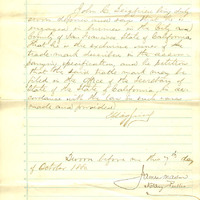 John A. being duly
sworn deposes and says that he is
engaged in business in the City and
County of San Francisco State of California
that he is the exclusive owner of the
trade mark described in the accom-
panying specification, and he petitions
that the said trade mark may be
filed in the Office of the Secretary of
State of the State of California, in ac-
cordance with the law in such cases
made and provided.
Sworn before me this 7th day
of October 188
James Mason
Notary Public